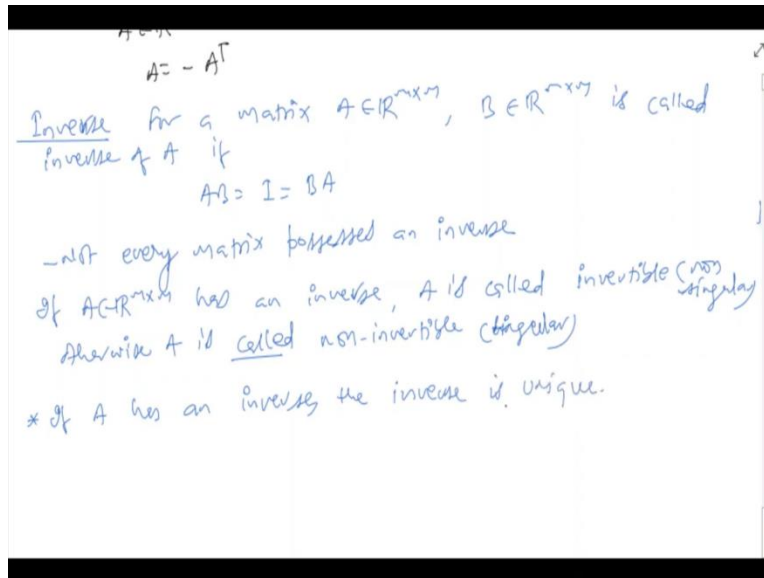 A = - Aᵀ
Inverse for a matrix A ∈ ℝⁿˣⁿ, B ∈ ℝⁿˣⁿ is called
inverse of A if
AB = I = BA
- Not every matrix possesses an inverse
If A ∈ ℝⁿˣⁿ has an inverse, A is called invertible (non
singular)
otherwise A is called non-invertible (singular)
* If A has an inverse, the inverse is unique.